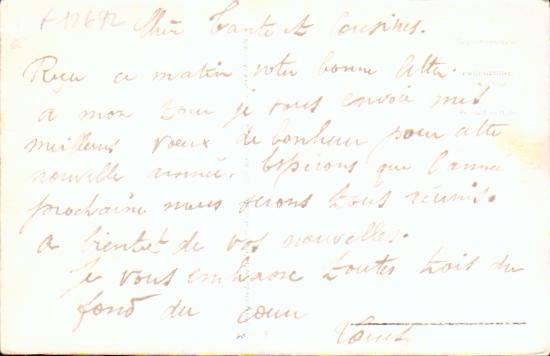 f 12692
Chère Tante et Cousines.
Reçu ce matin votre bonne lettre.
a mon tour je vous envoie mes
meilleurs vœux de bonheur pour cette
nouvelle année. Espérons que l'année
prochaine nous serons tous réunis.
a bientôt de vos nouvelles.
Je vous embrasse toutes trois du
fond du cœur